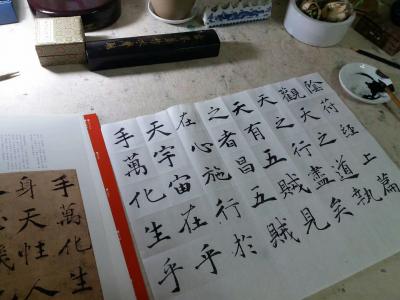 陰符經上篇
觀天之道執
天之行盡矣
天有五賊見
之者昌五賊
在心施行於
天宇宙在乎
手萬化生乎
手萬化生
身天性人
人心機